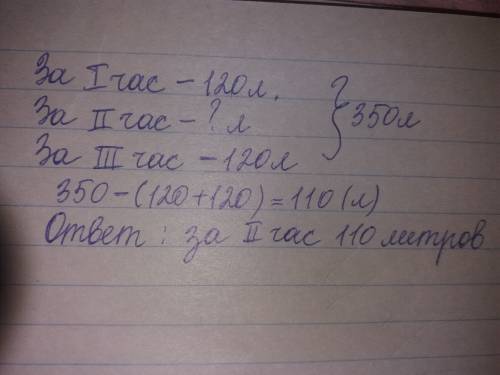 За I час - 120л.
За II час - ? л } 350л
За III час - 120л
350-(120+120)=110(л)
Ответ: за II час 110 литров